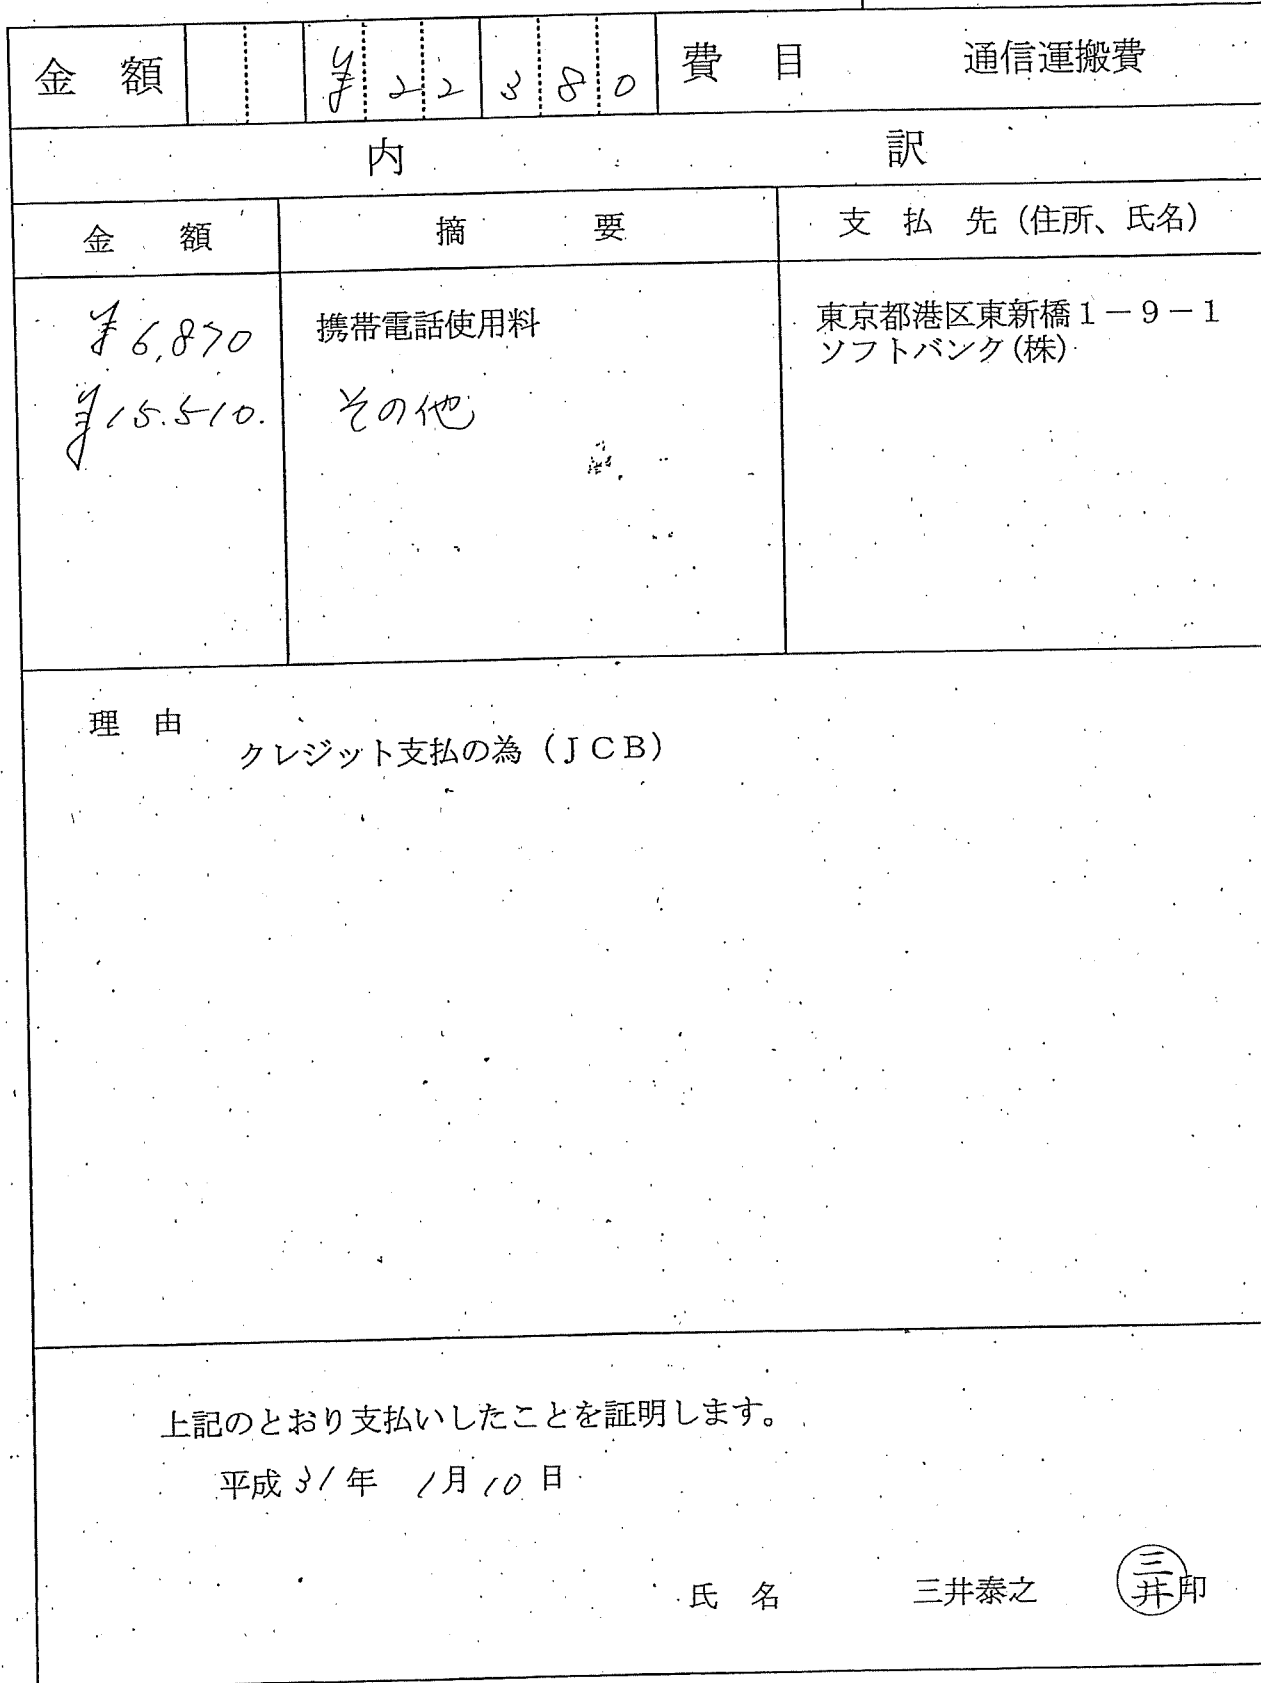 金 額 ¥22380 費 目 通信運搬費
内 訳
金 額 摘 要 支 払 先（住所、氏名）
¥6,870 携帯電話使用料 東京都港区東新橋１－９－１
ソフトバンク(株)
¥15.510. その他
理 由
クレジット支払の為（ＪＣＢ）
上記のとおり支払いしたことを証明します。
平成31年 1月10日
氏 名 三井泰之 三井 印